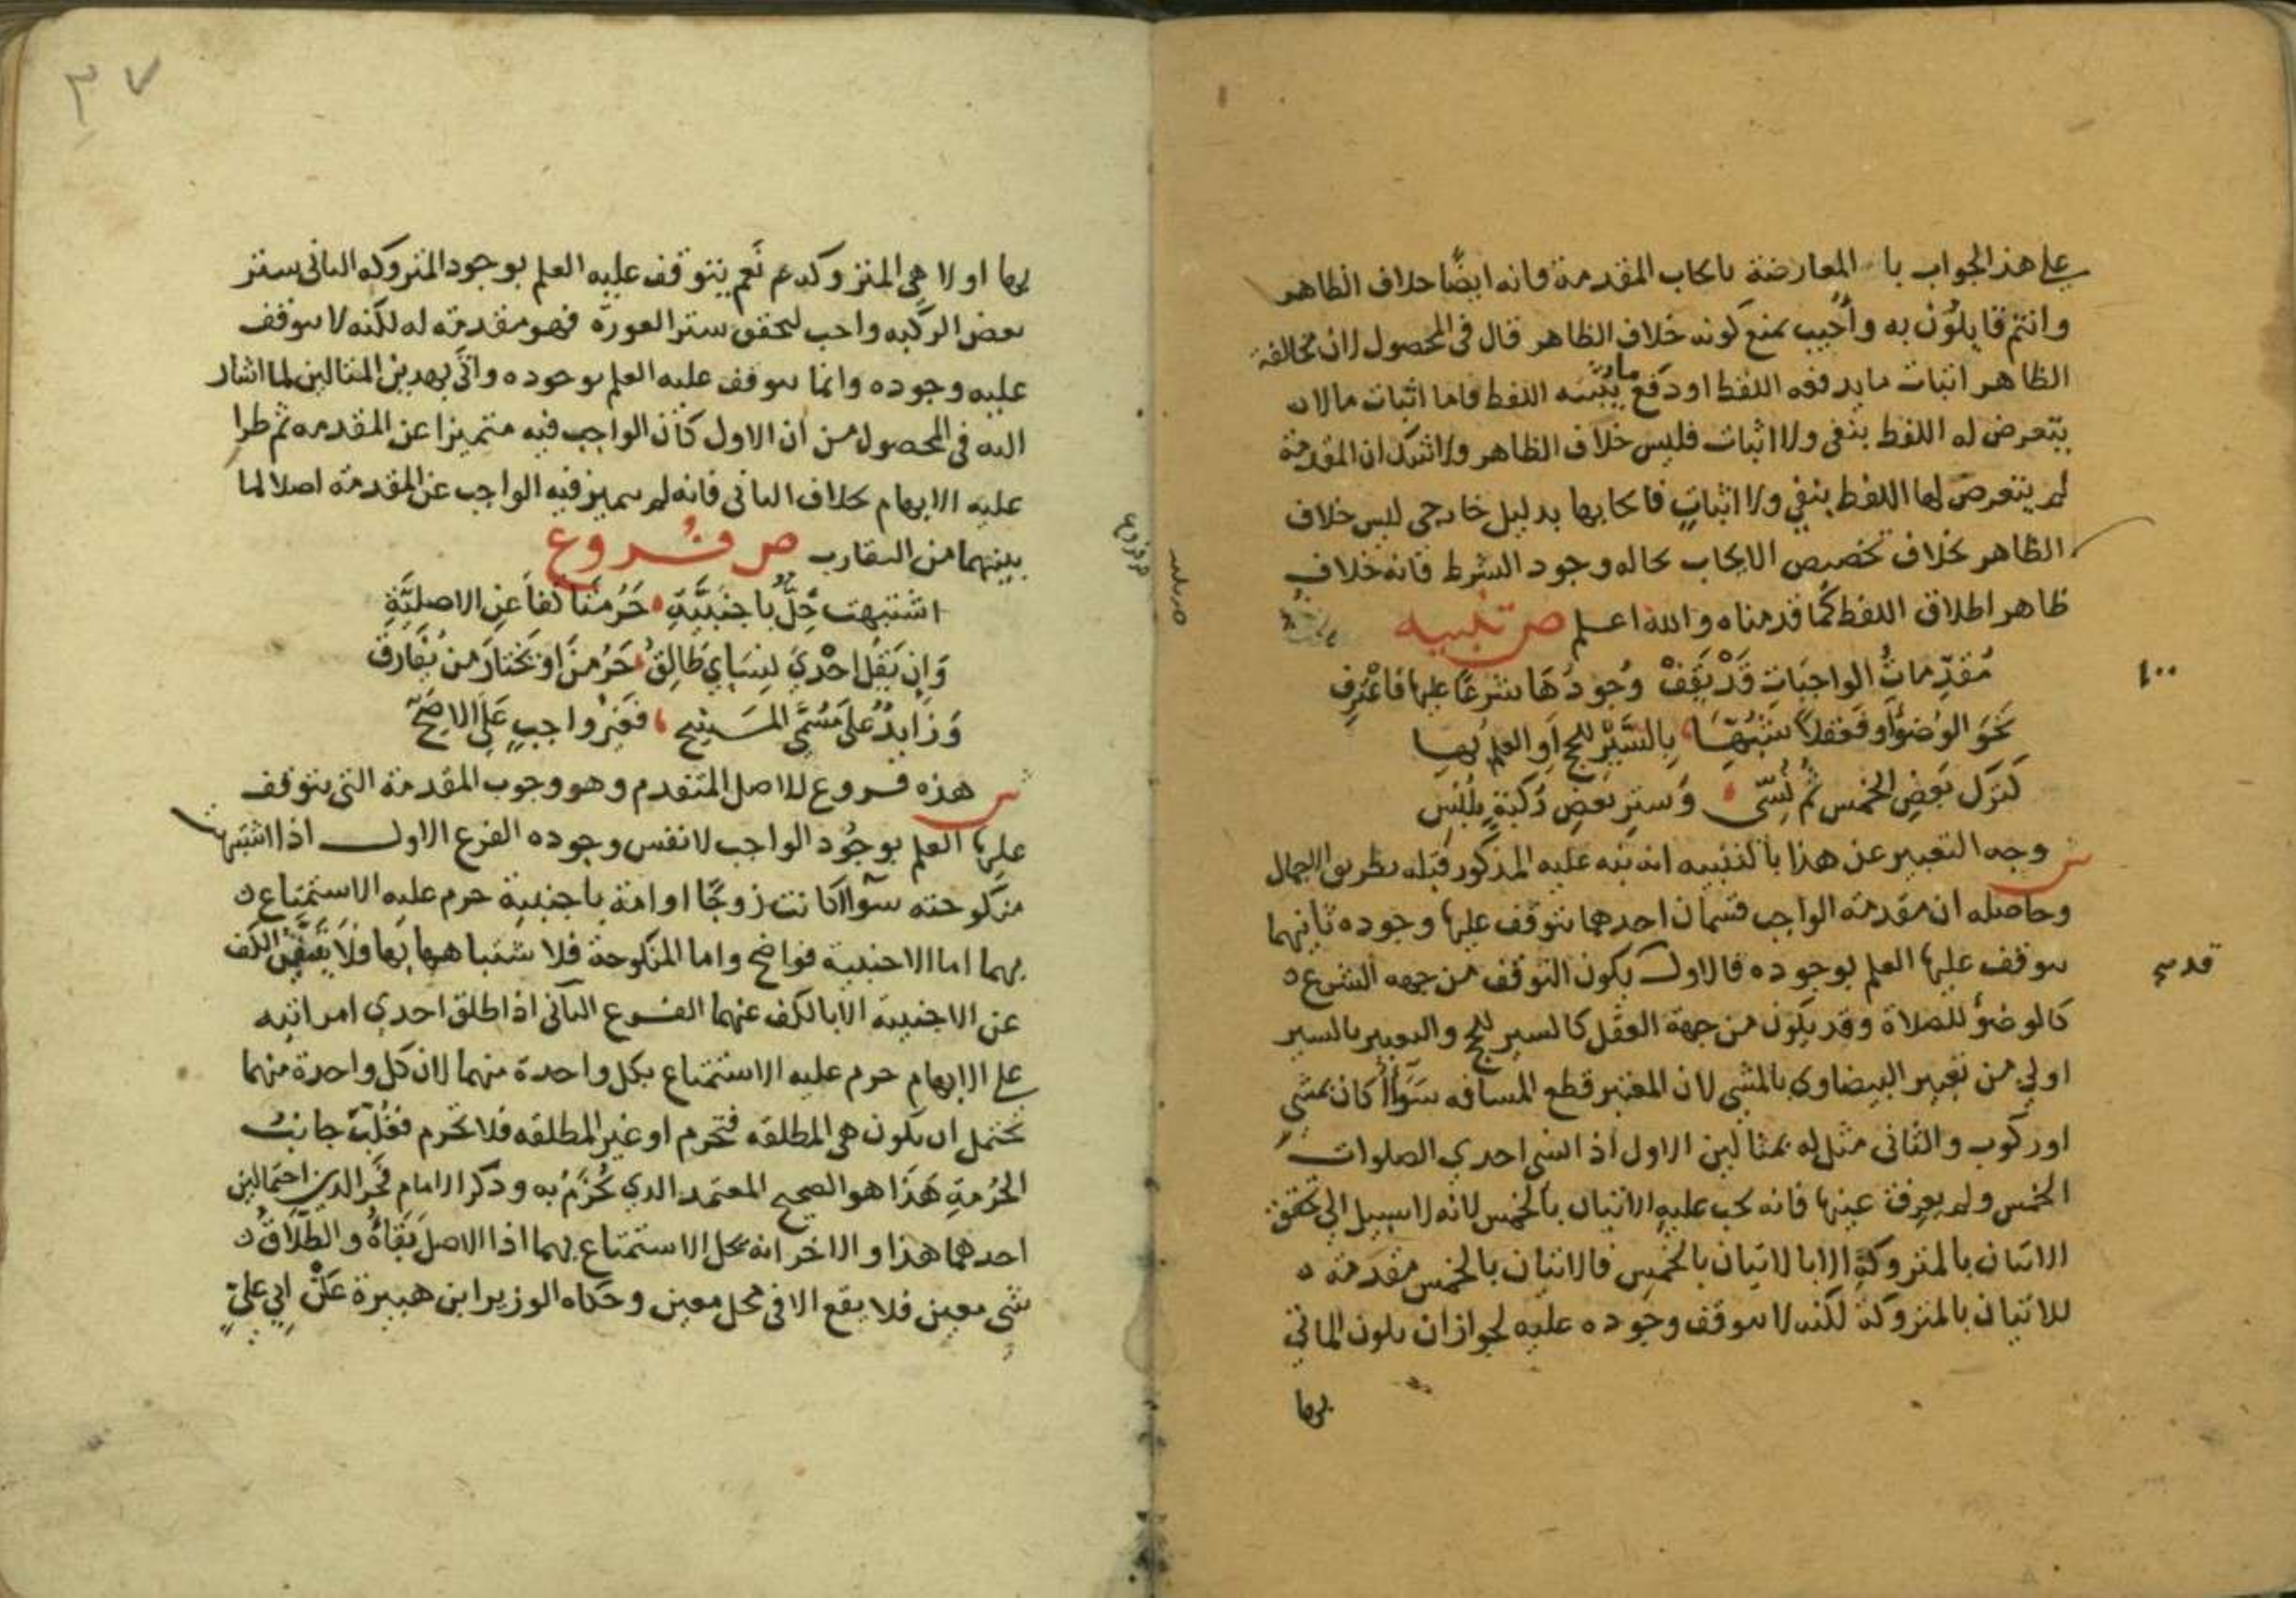 على هذا الجواب با المعارضة بايجاب المقدمة فانه ايضًا خلاف الظاهر
وانتم قايلون به وأُجيب بمنع كونه خلاف الظاهر قال في المحصول لان مخالفة
الظاهر اثبات ما يدفعه اللفظ او دفع ما يثبته اللفظ فاما اثبات ما لا
يتعرض له اللفظ بنفي ولا اثبات فليس خلاف الظاهر ولا شك ان المقدمة
لم يتعرض لها اللفظ بنفي ولا اثبات فايجابها بدليل خارجي ليس خلاف
الظاهر بخلاف تخصيص الايجاب بحاله وجود الشرط فانه خلاف
ظاهر اطلاق اللفظ كما قدمناه والله اعلم ص تنبيه
مُقدِّماتُ الواجبَاتِ قَدْ يَقِفْ وُجودُهَا شرعًا عليها فاعْرِفِ
نَحوَ الوُضوُ او فعقلًا شبْهُهَا بِالسَّيْرِ للحج أو العلم بها
كَتركِ بَعضِ الخمس ثم نُسِّى وَستر بَعضِ رُكبَةٍ بلُبْسِ
ش وجه التعبير عن هذا بالتنبيه انه نبه عليه المذكور قبله بطريق الاجمال
وحاصله ان مقدمة الواجب قسمان احدهما يتوقف عليها وجوده ثانيهما
يتوقف عليها العلم بوجوده فالاول يكون التوقف من جهه الشرع
كالوضوُ للصلاة وقد يكون من جهة العقل كالسير للحج والتعبير بالسير
اولى من تعبير البيضاوي بالمشي لان المعتبر قطع المسافه سَوآا كان بمشي
او ركوب والثاني مثل له بمثالين الاول اذا نسي احدي الصلوات
الخمس ولم يعرف عينها فانه يجب عليه الاتيان بالخمس لانه لا سبيل الى تحقق
الاتيان بالمتروكة الا بالاتيان بالخمس فالاتيان بالخمس مقدمة
للاتيان بالمتروكة لكنه لا يتوقف وجوده عليه لجواز ان يكون الماتي
بها
قدسي
ص تنبيه
٣٧
بها اولا هي المتروكه نَعم يتوقف عليه العلم بوجود المتروكه الثاني ستر
بعض الركبه واجب لتحقق ستر العورة فهو مقدمته له لكنه لا يتوقف
عليه وجوده وانما يتوقف عليه العلم بوجوده واتَى بهدين المثالين لما اشار
اليه في المحصول من ان الاول كان الواجب فيه متميزا عن المقدمه ثم طرا
عليه الابهام بخلاف الثاني فانه لم يتميز فيه الواجب عن المقدمة اصلا لما
بينهما من التقارب ص فُروع
اشتبهت حِلٌّ باجنبيَّةِ حَرُمتَا كفاً عن الاصليَّةِ
وَان يَقُل احْدي نِسَاي طَالِقُ حَرُمنَ او يَختارَ من يُفَارقُ
وَزايدٌ عَلى مُسَمَّى المَسْحِ فغيرُ واجبٍ عَلى الاصَحّ
ش هذه فروع للاصل المتقدم وهو وجوب المقدمة التي يتوقف
عليها العلم بوجُود الواجب لا نفس وجوده الفرع الاول اذا اشتبهت
منكوحته سوآا كانت زوجًا او امة باجنبية حرم عليه الاستمتاع
بهما اما الاجنبية فواضح واما المنكوحة فلاشتباهها بها ولا يتيقن الكف
عن الاجنبية الا بالكف عنهما الفرع الثاني اذا طلق احدي امراتيه
على الابهام حرم عليه الاستمتاع بكل واحدة منهما لان كل واحدة منهما
يحتمل ان يكون هي المطلقه فتحرم او غير المطلقه فلا تحرم فغُلِّبَ جانبُ
الحُرمةِ هَذا هو الصحيح المعتمد الدي يُجزمُ به وذكر الامام فخر الدين احتمالين
احدهما هذا والاخر انه يحل الاستمتاع بهما اذ الاصل بقاؤه والطلاقُ
شي معين فلا يقع الا في محل معين وحكاه الوزير ابن هبيرة عَن ابي عليّ
ص فروع